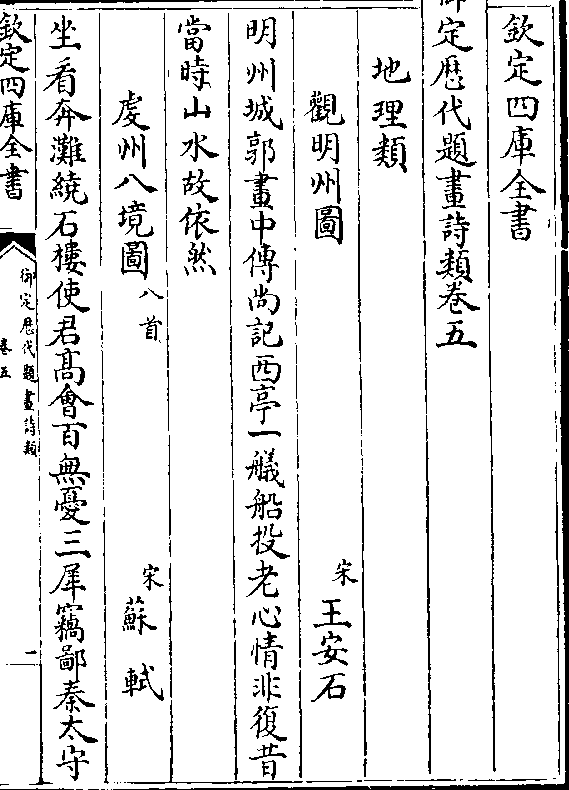 欽定四庫全書
御定歷代題畫詩類卷五
地理類
觀明州圖 宋 王安石
明州城郭畫中傳尚記西亭一艤船投老心情非復昔
當時山水故依然
虔州八境圖 八首 宋 蘇軾
坐看奔灘繞石樓使君髙會百無憂三犀竊鄙秦太守
欽定四庫全書
御定歷代題畫詩類
卷五
一